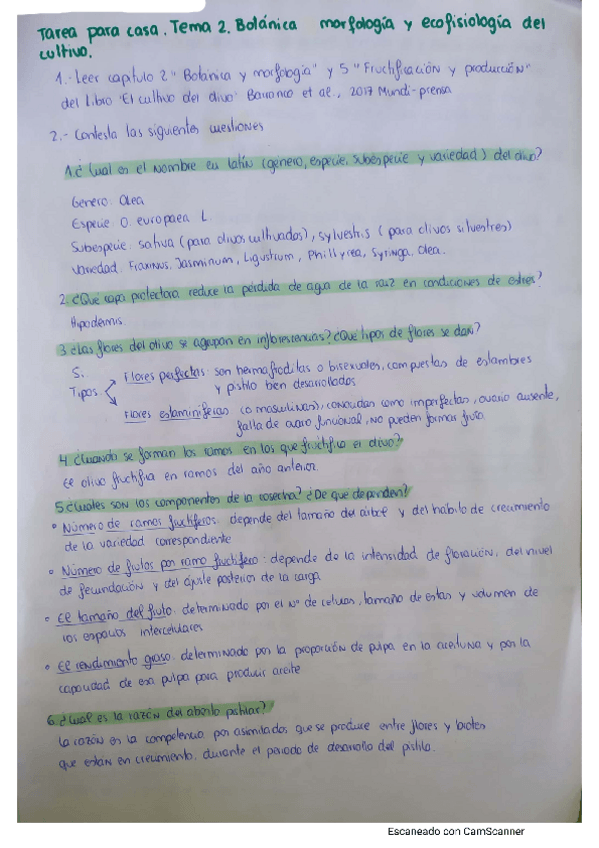 Tarea para casa. Tema 2. Botánica morfología y ecofisiología del
cultivo.
1.- Leer capítulo 2 "Botánica y morfología" y 5 "Fructificación y producción"
del Libro 'El cultivo del olivo' Barranco et al., 2017 Mundi-prensa
2.- Contesta las siguientes cuestiones
1. ¿Cual es el nombre en latín (género, especie, subespecie y variedad) del olivo?
Genero: Olea
Especie: O. europaea L.
Subespecie: sativa (para olivos cultivados), sylvestris (para olivos silvestres)
Variedad: Fraxinus, Jasminum, Ligustrum, Phillyrea, Syringa, Olea.
2. ¿Qué capa protectora reduce la pérdida de agua de la raíz en condiciones de estres?
Hipodermis.
3. ¿Las flores del olivo se agrupan en inflorescencias? ¿Qué tipos de flores se dan?
S.
Tipos
Flores perfectas: son hermafroditas o bisexuales, compuestas de estambres
y pistilo bien desarrollados
Flores estaminíferas (o masculinas), conocidas como imperfectas, ovario ausente,
falta de ovario funcional, no pueden formar fruto.
4. ¿Cuando se forman los ramos en los que fructifica el olivo?
El olivo fructifica en ramos del año anterior.
5. ¿Cuales son los componentes de la cosecha? ¿De que dependen?
• Número de ramos fructíferos: depende del tamaño del árbol y del habito de crecimiento
de la variedad correspondiente
• Número de frutos por ramo fructífero: depende de la intensidad de floración, del nivel
de fecundación y del ajuste posterior de la carga
• El tamaño del fruto: determinado por el nº de celulas, tamaño de estas y volumen de
los espacios intercelulares
• El rendimiento graso: determinado por la proporción de pulpa en la aceituna y por la
capacidad de esa pulpa para producir aceite
6. ¿Cual es la razón del aborto pistilar?
La razón es la competencia por asimilados que se produce entre flores y brotes
que estan en crecimiento durante el periodo de desarrollo del pistilo.
Escaneado con CamScanner